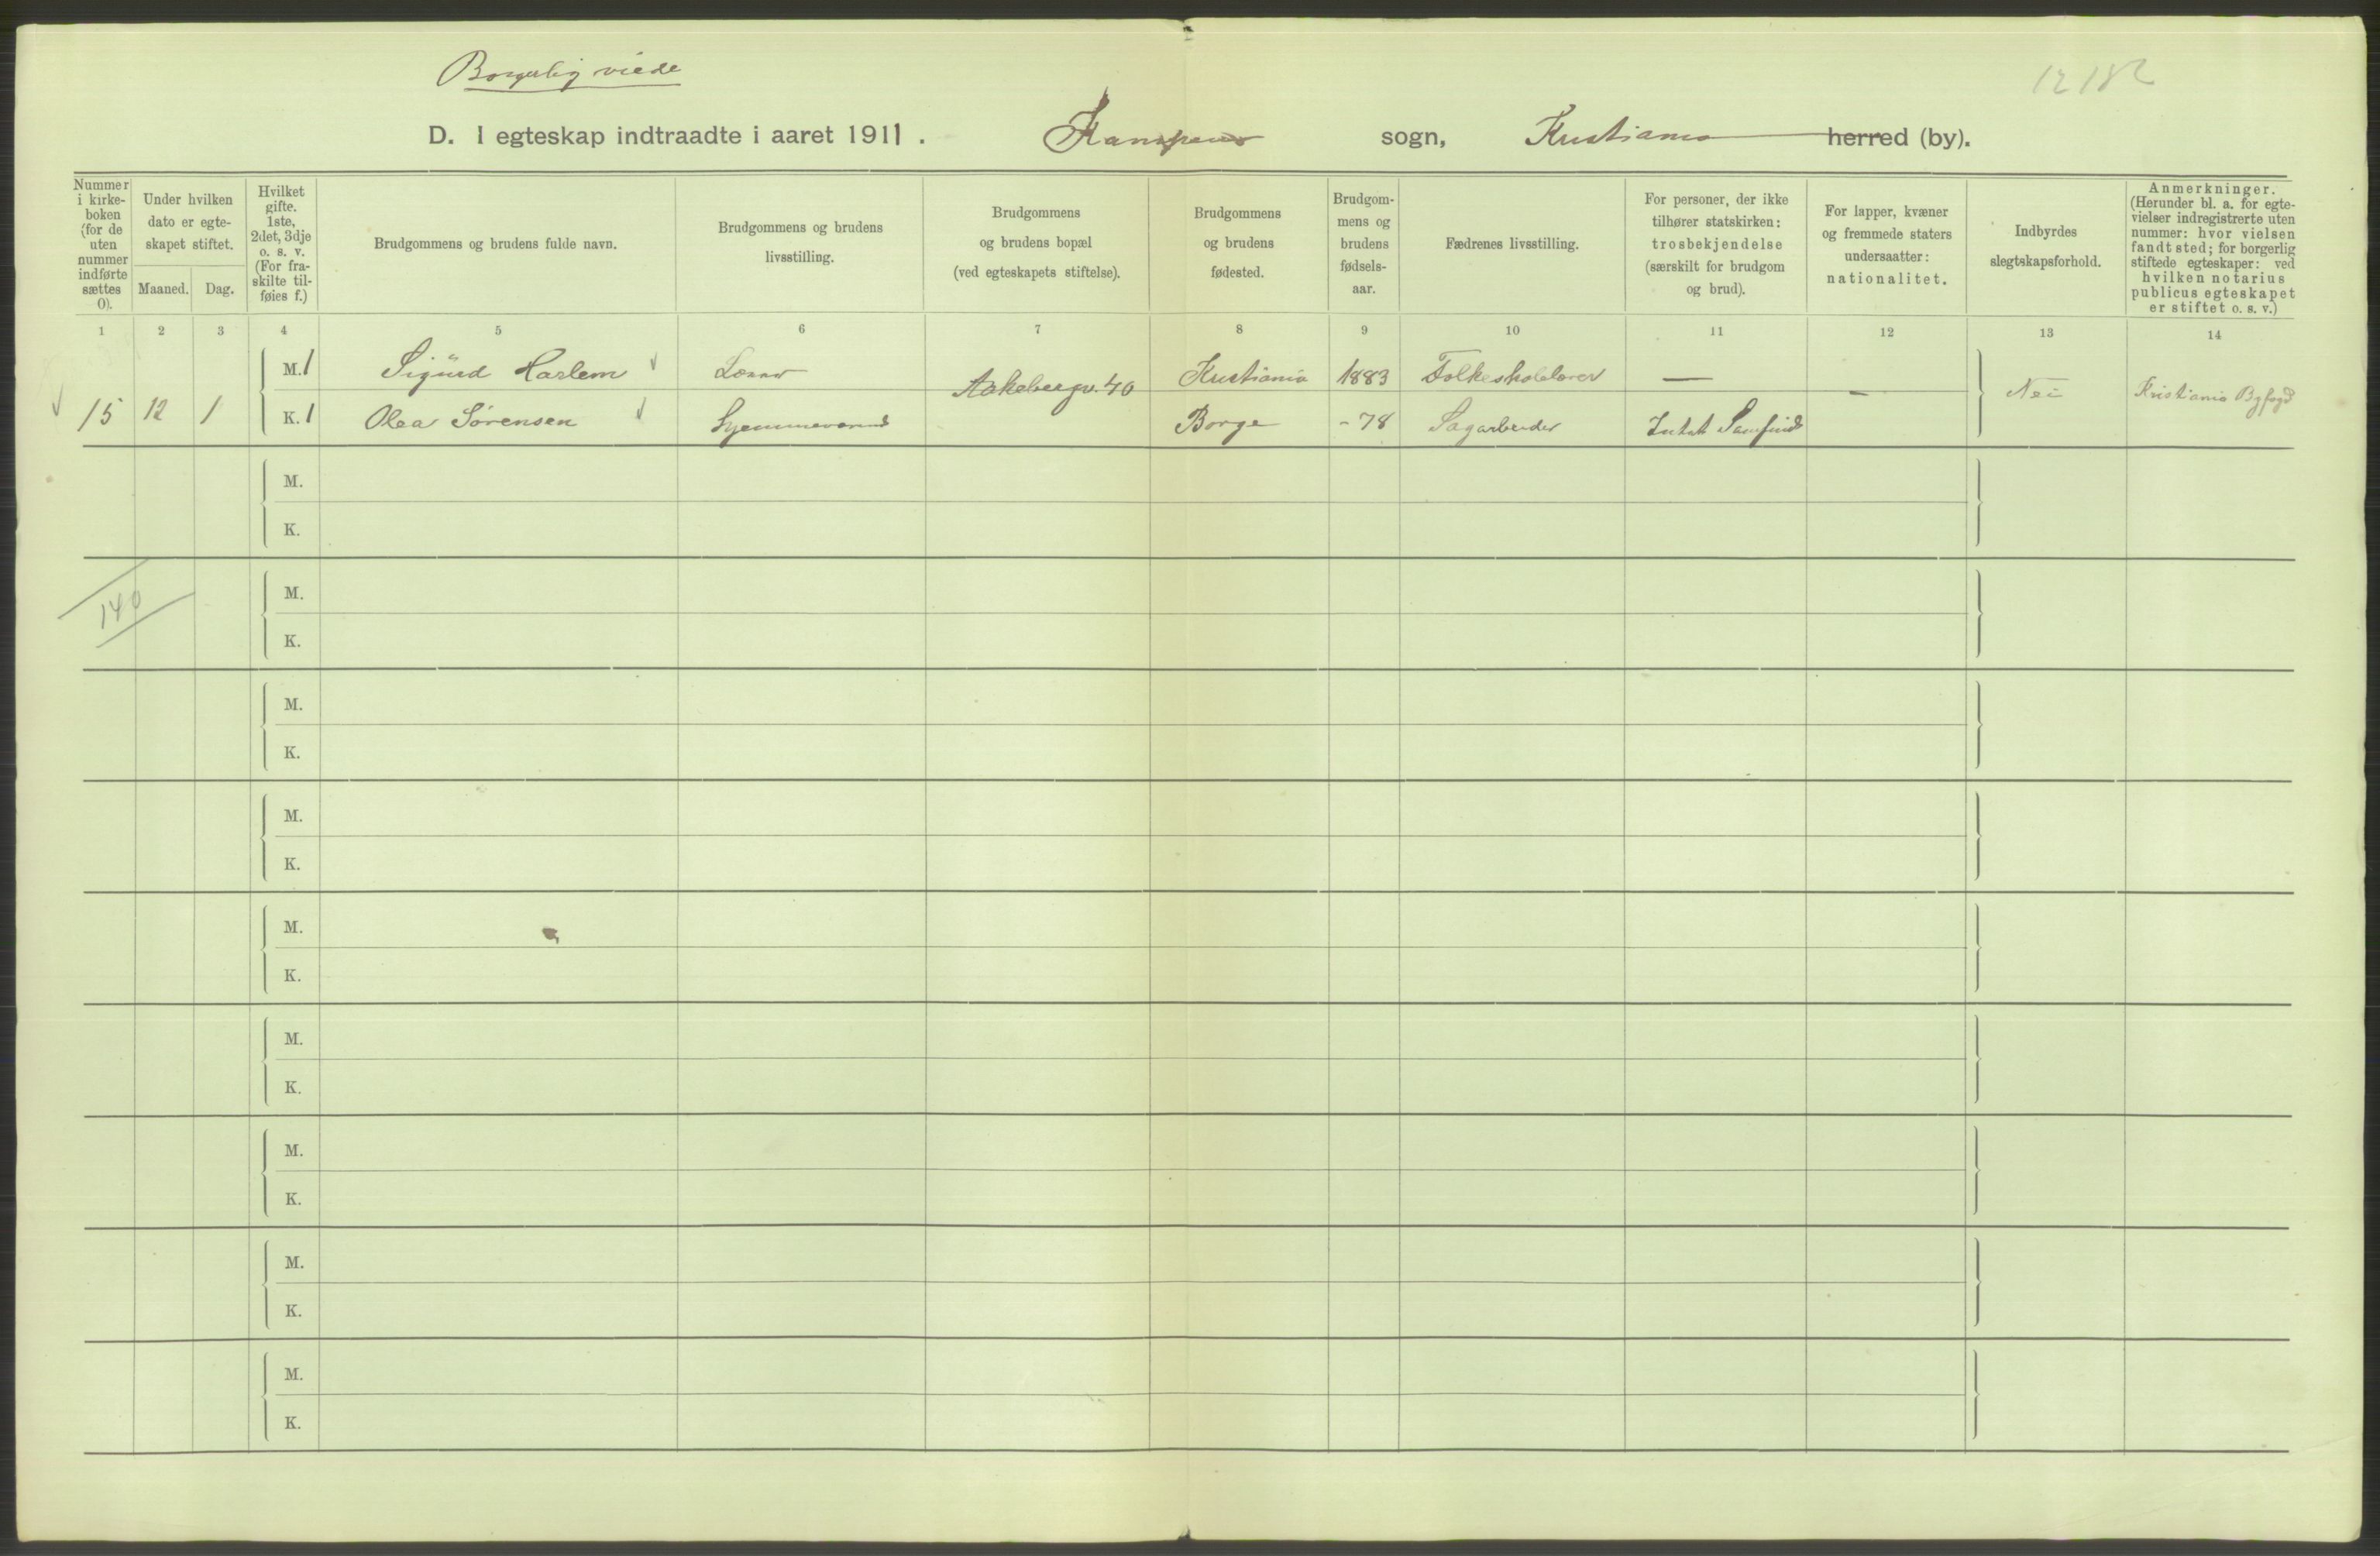 Borgerlig viede
12182
D. I egteskap indtraadte i aaret 1911. Kampens sogn, Kristiania herred (by).
Nummer i kirke-boken (for de uten nummer indførte sættes 0).
Under hvilken dato er egte-skapet stiftet.
Maaned. Dag.
Hvilket gifte. 1ste, 2det, 3dje o. s. v. (For fra-skilte til-føies f.)
Brudgommens og brudens fulde navn.
Brudgommens og brudens livsstilling.
Brudgommens og brudens bopæl (ved egteskapets stiftelse).
Brudgommens og brudens fødested.
Brudgom-mens og brudens fødsels-aar.
Fædrenes livsstilling.
For personer, der ikke tilhører statskirken: trosbekjendelse (særskilt for brudgom og brud).
For lapper, kvæner og fremmede staters undersaatter: nationalitet.
Indbyrdes slegtskapsforhold.
Anmerkninger. (Herunder bl. a. for egte-vielser indregistrerte uten nummer: hvor vielsen fandt sted; for borgerlig stiftede egteskaper: ved hvilken notarius publicus egteskapet er stiftet o. s. v.)
1 2 3 4 5 6 7 8 9 10 11 12 13 14
M. 1 Sigurd Harlem Lærer Aakebergv. 40 Kristiania 1883 Folkeskolelærer — — Nei Kristiania Byfogd
15 12 1 K. 1 Olea Sørensen Hjemmeværende Borge -78 Sagarbeider Intet Samfund
M.
K.
140
M.
K.
M.
K.
M.
K.
M.
K.
M.
K.
M.
K.
M.
K.
M.
K.